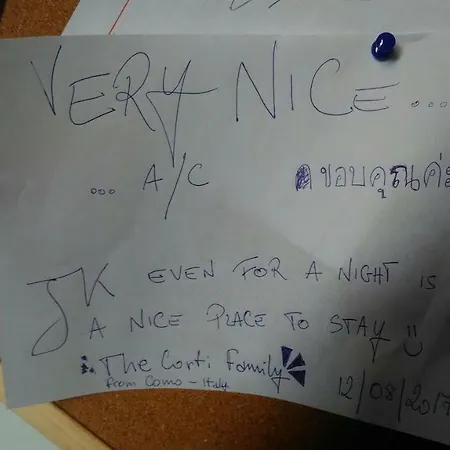 VERY NICE ...
... A/C ขอบคุณค่ะ
JK EVEN FOR A NIGHT IS
A NICE PLACE TO STAY
The Corti Family
from Como - Italy
12/08/2017